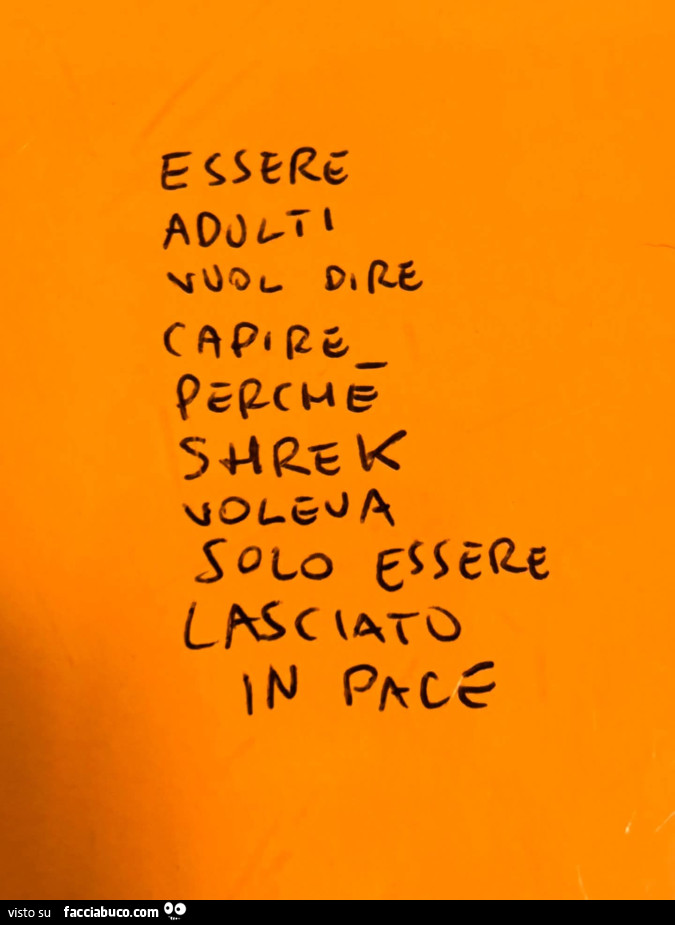 ESSERE
ADULTI
VUOL DIRE
CAPIRE_
PERCHÉ
SHREK
VOLEVA
SOLO ESSERE
LASCIATO
IN PACE
visto su facciabuco.com